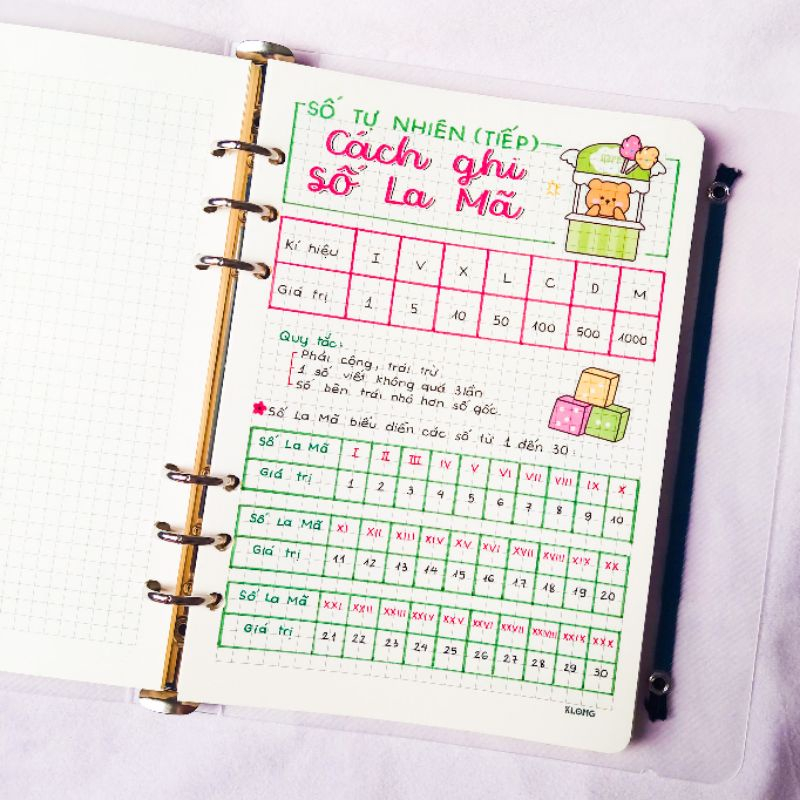 SỐ TỰ NHIÊN (TIẾP)
Cách ghi
số La Mã
Kí hiệu I V X L C D M
Giá trị 1 5 10 50 100 500 1000
Quy tắc:
Phải cộng, trái trừ
1 số viết không quá 3 lần
Số bên trái nhỏ hơn số gốc.
Số La Mã biểu diễn các số từ 1 đến 30:
Số La Mã I II III IV V VI VII VIII IX X
Giá trị 1 2 3 4 5 6 7 8 9 10
Số La Mã XI XII XIII XIV XV XVI XVII XVIII XIX XX
Giá trị 11 12 13 14 15 16 17 18 19 20
Số La Mã XXI XXII XXIII XXIV XXV XXVI XXVII XXVIII XXIX XXX
Giá trị 21 22 23 24 25 26 27 28 29 30
KLONG